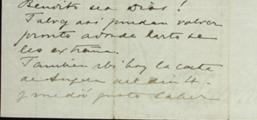 Bendito sea Dios!
Talvez asi puedan volver
pronto adonde tanto se
les extraña.
Tambien rbi hoy la carta
de Angela del dia 4.
y me dió gusto saber